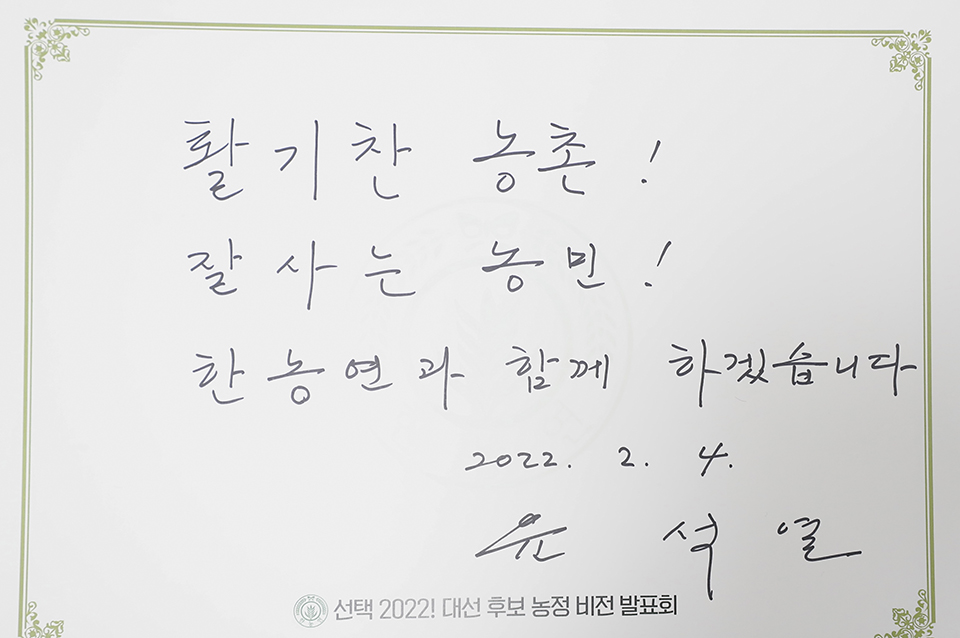 활기찬 농촌!
잘사는 농민!
한농연과 함께 하겠습니다
2022. 2. 4.
윤 석 열
선택 2022! 대선 후보 농정 비전 발표회